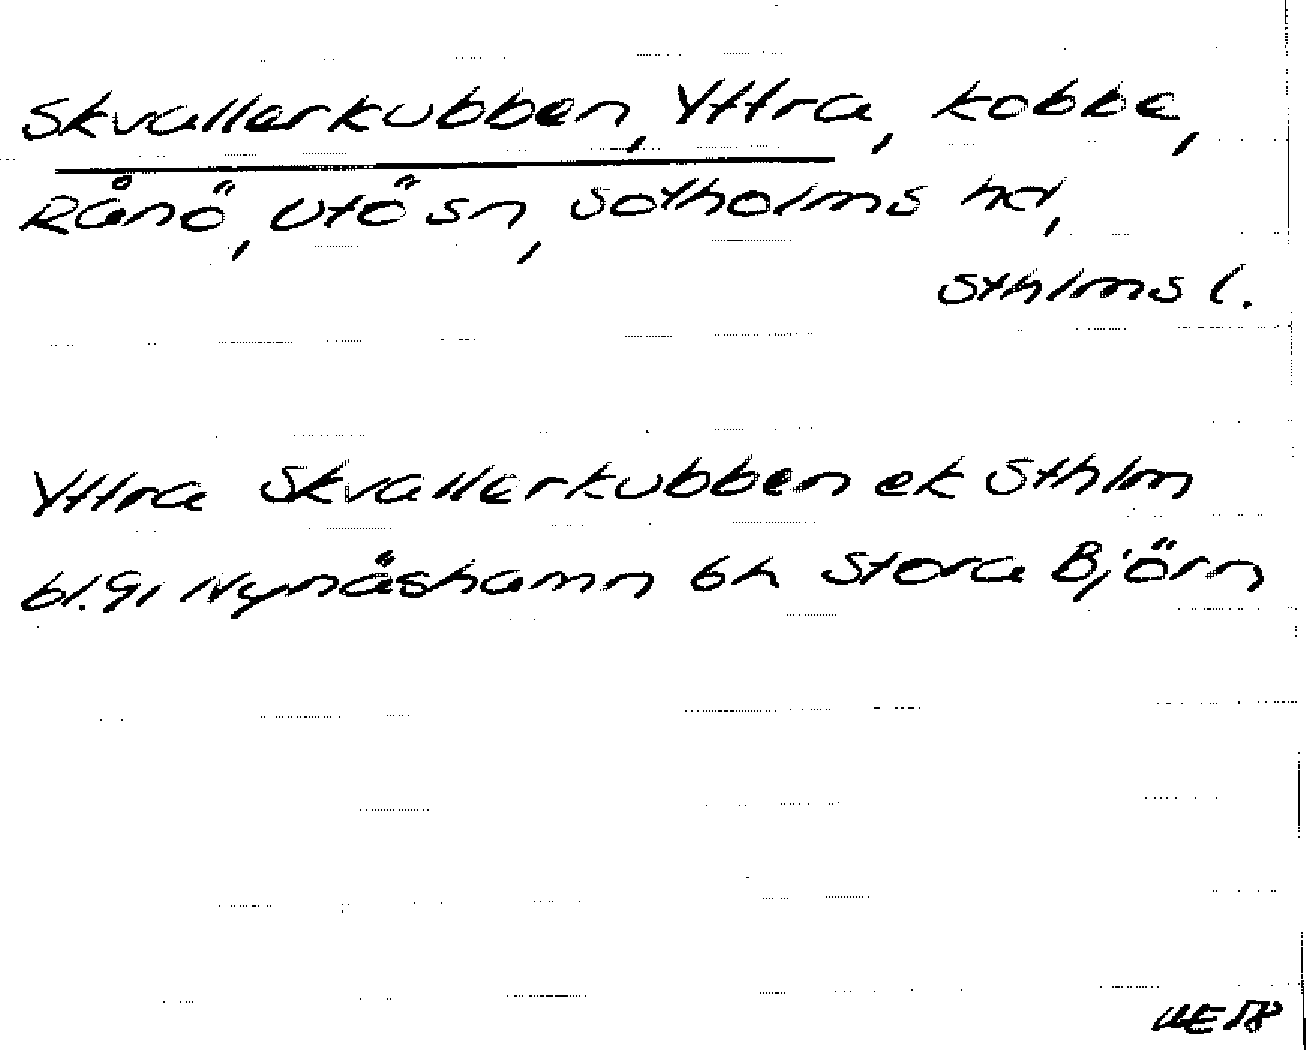 Skvallerkubben, Yttra, kobbe,
Rånö, Utö sn, Sotholms hd,
Sthlms l.
Yttra Skvallerkubben ek Sthlm
bl. 91 Nynäshamn bh Stora Björn